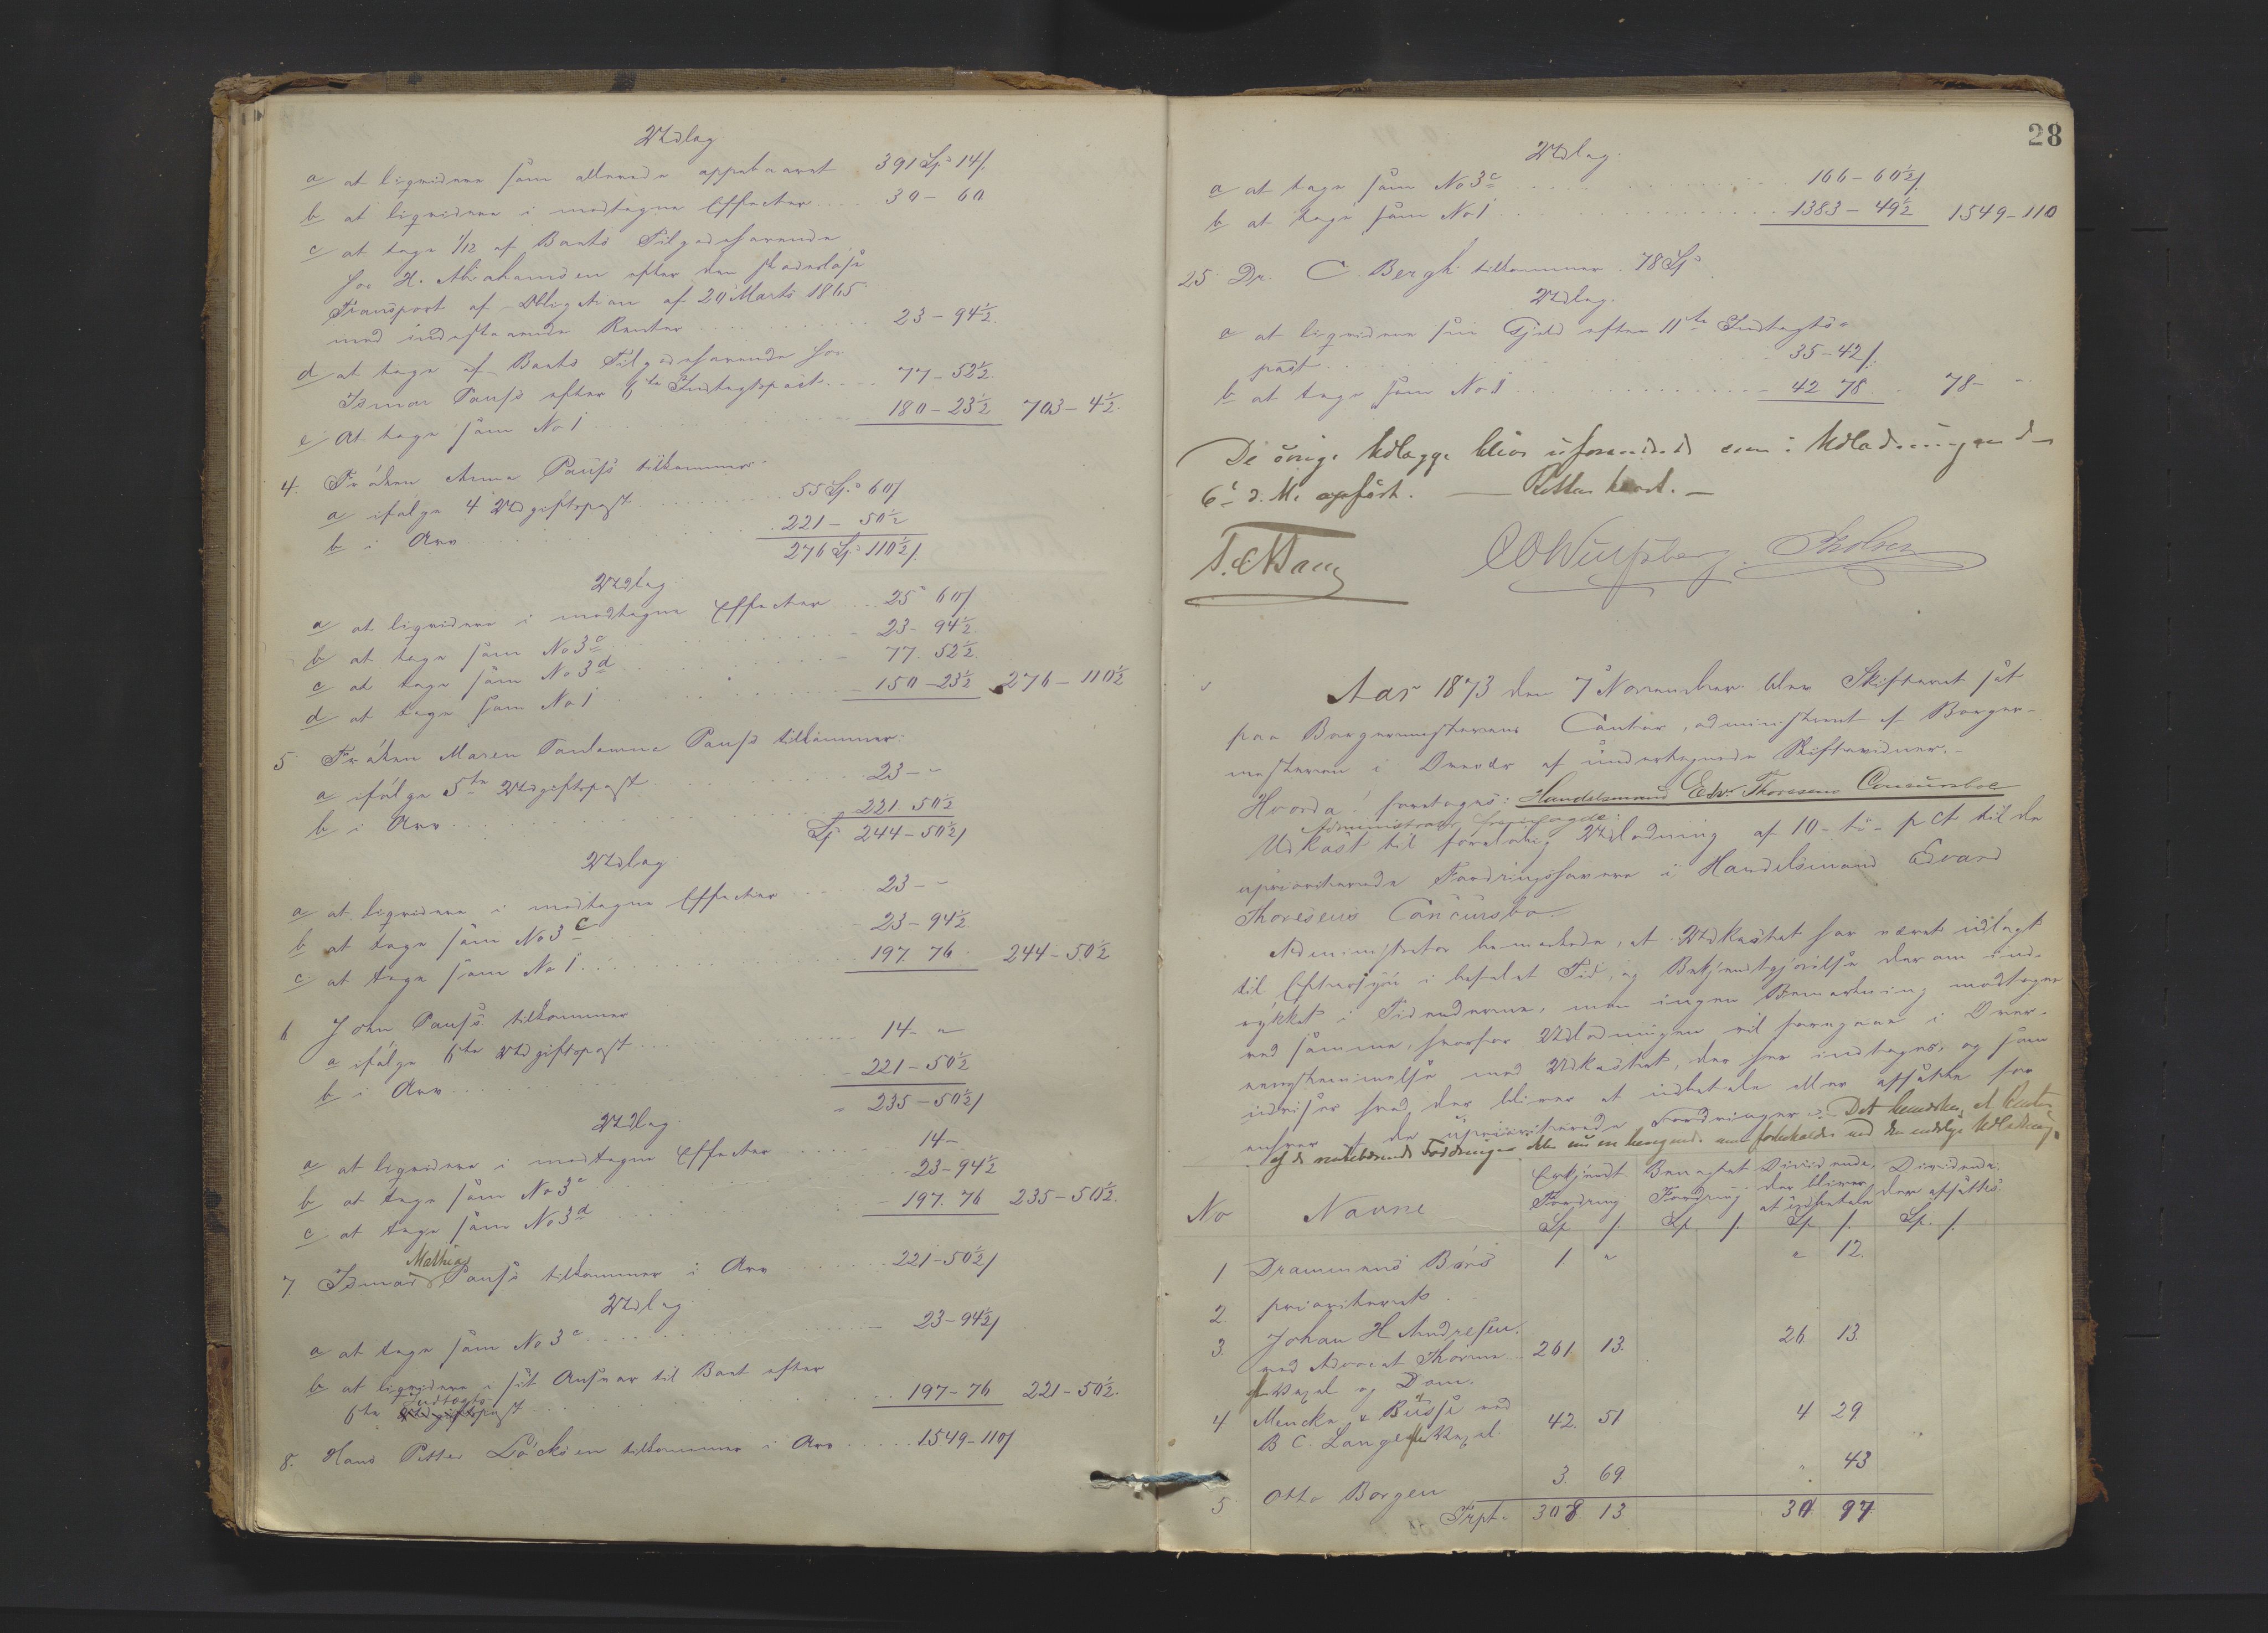 Udlag.
a at liqvidere som allerede oppebaaret 391 Sp: 14 ſ.
b at liqvidere i modtagne Effecter .... 30 - 60
c at tage 1/12 af Boets Tilgodehavende
hos H. Abrahamsen efter den skadesløse
Transport af Obligation af 20 Marts 1865
med indestaaende Renter ......... 23 - 94½.
d at tage af Boets Tilgodehavende hos
Ismar Pauss efter 6te Indtægtspost .... 77 - 52½.
e at tage som No 1 ........ 180 - 23½ 703 - 4½.
4. Frøken Anna Pauss tilkommer
a ifølge 4 Udgiftspost ........ 55 Sp: 60 ſ
b i Arv ........ 221 - 50½
276 Sp: 110½ ſ.
Udlag.
a at liqvidere i modtagne Effecter .... 25 " 60 ſ
b at tage som No 3 c ........ 23 - 94½
c at tage som No 3 d ........ 77. 52½.
d at tage som No 1 ........ 150 - 23½ 276 - 110½
5 Frøken Maren Pauss tilkommer
a ifølge 5te Udgiftspost ........ 23 - "
b i Arv ........ 221. 50½
Sp 244 - 50½ ſ
Udlag
a at liqvidere i modtagne Effecter .... 23 - "
b at tage som No 3 c ........ 23 - 94½
c at tage som No 1 ........ 197. 76. 244 - 50½
6 John Pauss tilkommer
a ifølge 6te Udgiftspost ........ 14 - "
b i Arv ........ 221 - 50½
" 235 - 50½ ſ
Udlag.
a at liqvidere i modtagne Effecter .... 14 -
b at tage som No 3 c ........ 23 - 94½
c at tage som No 3 d ........ 197. 76 235 - 50½.
Mathias
7 Ismar Pauss tilkommer i Arv .... 221 - 50½ ſ
Udlag
a at tage som No 3 c ........ 23 - 94½ ſ
b at liqvidere i sit Ansvar til Boet efter
Indtægts
6te Udgiftspost ........ 197 - 76 221 - 50½.
8. Hans Petter tilkommer i Arv ..... 1549 - 110 ſ
28
Udlag.
a at tage som No 3 c ........ 166 - 60½ ſ.
b at tage som No 1 ........ 1383 - 49½ 1549 - 110
25 Dr. C. Bergh tilkommer 78 Sp:
Udlag.
a at liqvidere sin Gjeld efter 11te Indtægts-
post ........ 35 - 42 ſ.
b at tage som No 1 ........ 42 78 78 - "
De øvrige Udlægge bliver uforandrede som i Udlodningen d
6te d. M. opført. — Retten hævet. —
C O Wulfsberg.
Aar 1873 den 7 November blev Skifteret sat
paa Borgermesterens Contor, administreret af Borger-
mesteren i Overvær af undertegnede Skiftevidner. -
Hvorda foretoges: Handelsmand Edv. Thoresens Concursboe
Administrator fremlagde:
Udkast til foreløbig Udlodning af 10 - ti - pCt til de
uprioriterede Fordringshavere i Handelsmand Edvard
Thoresens Concursbo.
Administrator bemærkede, at Udkastet har været udlagt
til Eftersyn i befalet Tid, og Bekjendtgjørelse derom ind-
rykket i Tidenderne, men ingen Bemærkning modtaget
ved samme, hvorfor Udlodningen vil foregaae i Over-
eensstemmelse med Udkastet, der her indtages, og som
udviser hvad der bliver at udbetale eller afsætte for
enhver af de uprioriterede Fordringer. Det bemærkes, at Renter
af de rentebærende Fordringer forbeholdes ved den endelige Udlodning.
No Navne Erkjendt Fordring Sp ſ. Benegtet Fordring Sp. ſ. Dividende, der bliver at udbetale Sp ſ. Dividende, der afsættes. Sp. ſ.
1 Drammens Børs 1 " " 12.
2. prioriteret.
3. Johan H. Andresen
ved Advocat Thorne 261. 13. 26 13.
for Vexel og Dom.
4 Mencke & Busse ved
B C. Lange for Vexel. 42. 51 4 29
5 Otto Borgen 3. 69. " 43
Trpt. 308 13 30 97